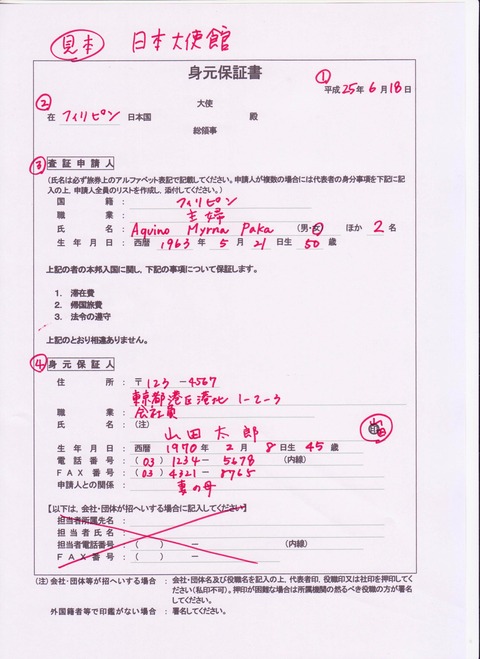 見本 日本大使館
身元保証書
① 平成25年6月18日
② 大使
在 フィリピン 日本国 殿
総領事
③ 査証申請人
(氏名は必ず旅券上のアルファベット表記で記載してください。申請人が複数の場合には代表者の身分事項を下記に記
入の上、申請人全員のリストを作成し、添付してください。)
国籍: フィリピン
職業: 主婦
氏名: Aquino Myrna Paka (男・女) ほか 2 名
生年月日: 西暦 1963 年 5 月 21 日生 50 歳
上記の者の本邦入国に関し、下記の事項について保証します。
1. 滞在費
2. 帰国旅費
3. 法令の遵守
上記のとおり相違ありません。
④ 身元保証人
住所: 〒123-4567
東京都港区港北1-2-3
職業: 会社員
氏名: (注)
山田太郎 山田
生年月日: 西暦 1970 年 2 月 8 日生 45 歳
電話番号: (03) 1234-5678 (内線)
FAX番号: (03) 4321-8765
申請人との関係: 妻の母
【以下は、会社・団体が招へいする場合に記入してください】
担当者所属先名:
担当者氏名:
担当者電話番号: ( ) - (内線)
FAX番号: ( ) -
(注) 会社・団体等が招へいする場合 : 会社・団体名及び役職名を記入の上、代表者印、役職印又は社印を押印してく
ださい(私印不可)。押印が困難な場合は所属機関の然るべき役職の方が署名
してください。
外国籍者等で印鑑がない場合 : 署名してください。